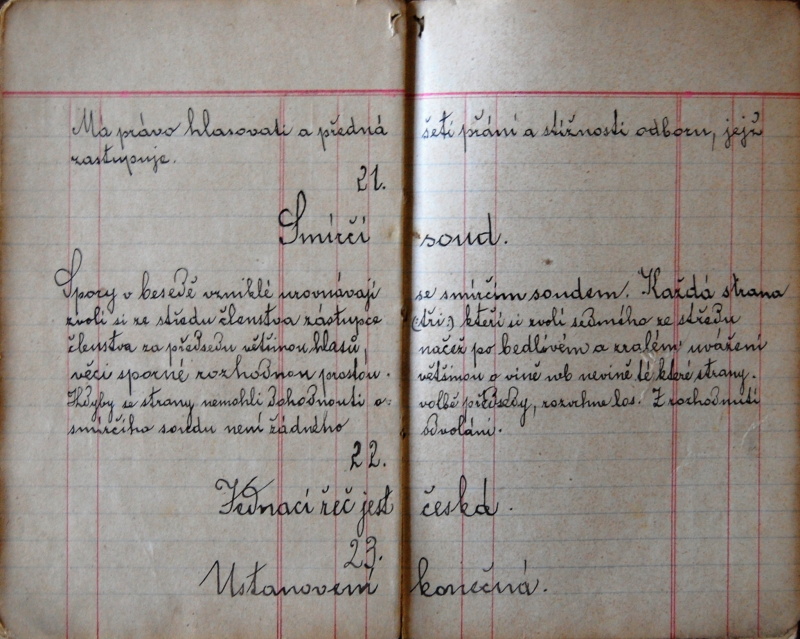 Má právo hlasovati a předná šeti přání a stížnosti odboru, jejž
zastupuje.
21.
Smírčí soud.
Spory v besedě vzniklé urovnávají se smírčím soudem. Každá strana
zvolí si ze středu členstva zástupce (tři.) kteří si zvolí sedmého ze středu
členstva za předsedu většinou hlasů, načež po bedlivém a zralém uvážení
věci sporné rozhodnou prostou. většinou o vině neb nevině té které strany.
Kdyby se strany nemohli dohodnouti o volbě předsedy, rozvrhne los. Z rozhodnutí
smírčího soudu není žádného odvolání.
22.
Jednací řeč jest česká.
23.
Ustanovení konečná.